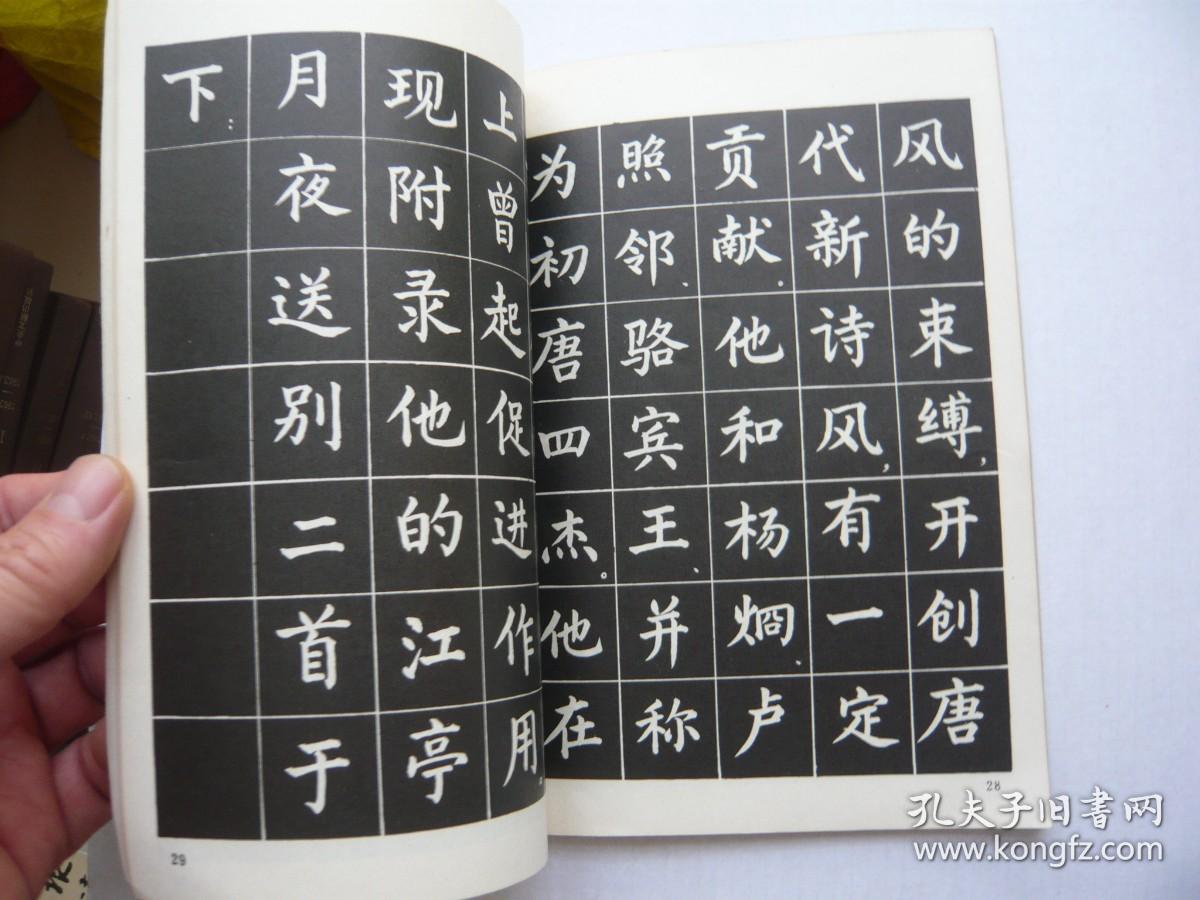 风的束缚，开创唐
代新诗风，有一定
贡献。他和杨炯、卢
照邻、骆宾王、并称
为初唐四杰。他在
28
上曾起促进作用。
现附录他的江亭
月夜送别二首于
下：
29
孔夫子旧書网
www.kongfz.com